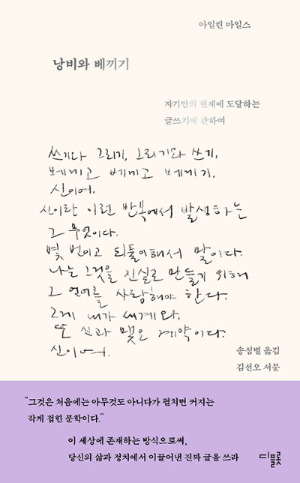 아일린 마일스
낭비와 베끼기
자기만의 현재에 도달하는
글쓰기에 관하여
쓰기와 그리기, 그리기와 쓰기,
베끼고 베끼고 베끼기,
신이여,
신이란 이런 반복에서 발생하는
그 무엇이다.
몇 번이고 되풀이해서 말이다.
나는 그것을 진실로 만들기 위해
그 언어를 사랑해야 한다.
그게 내가 세계와,
또 신과 맺은 계약이다.
신이여.
송섬별 옮김
김선오 서문
"그것은 처음에는 아무것도 아니다가 펼치면 커지는
작게 접힌 문학이다."
이 세상에 존재하는 방식으로써,
당신의 삶과 정치에서 이끌어낸 진짜 글을 쓰라
디플롯